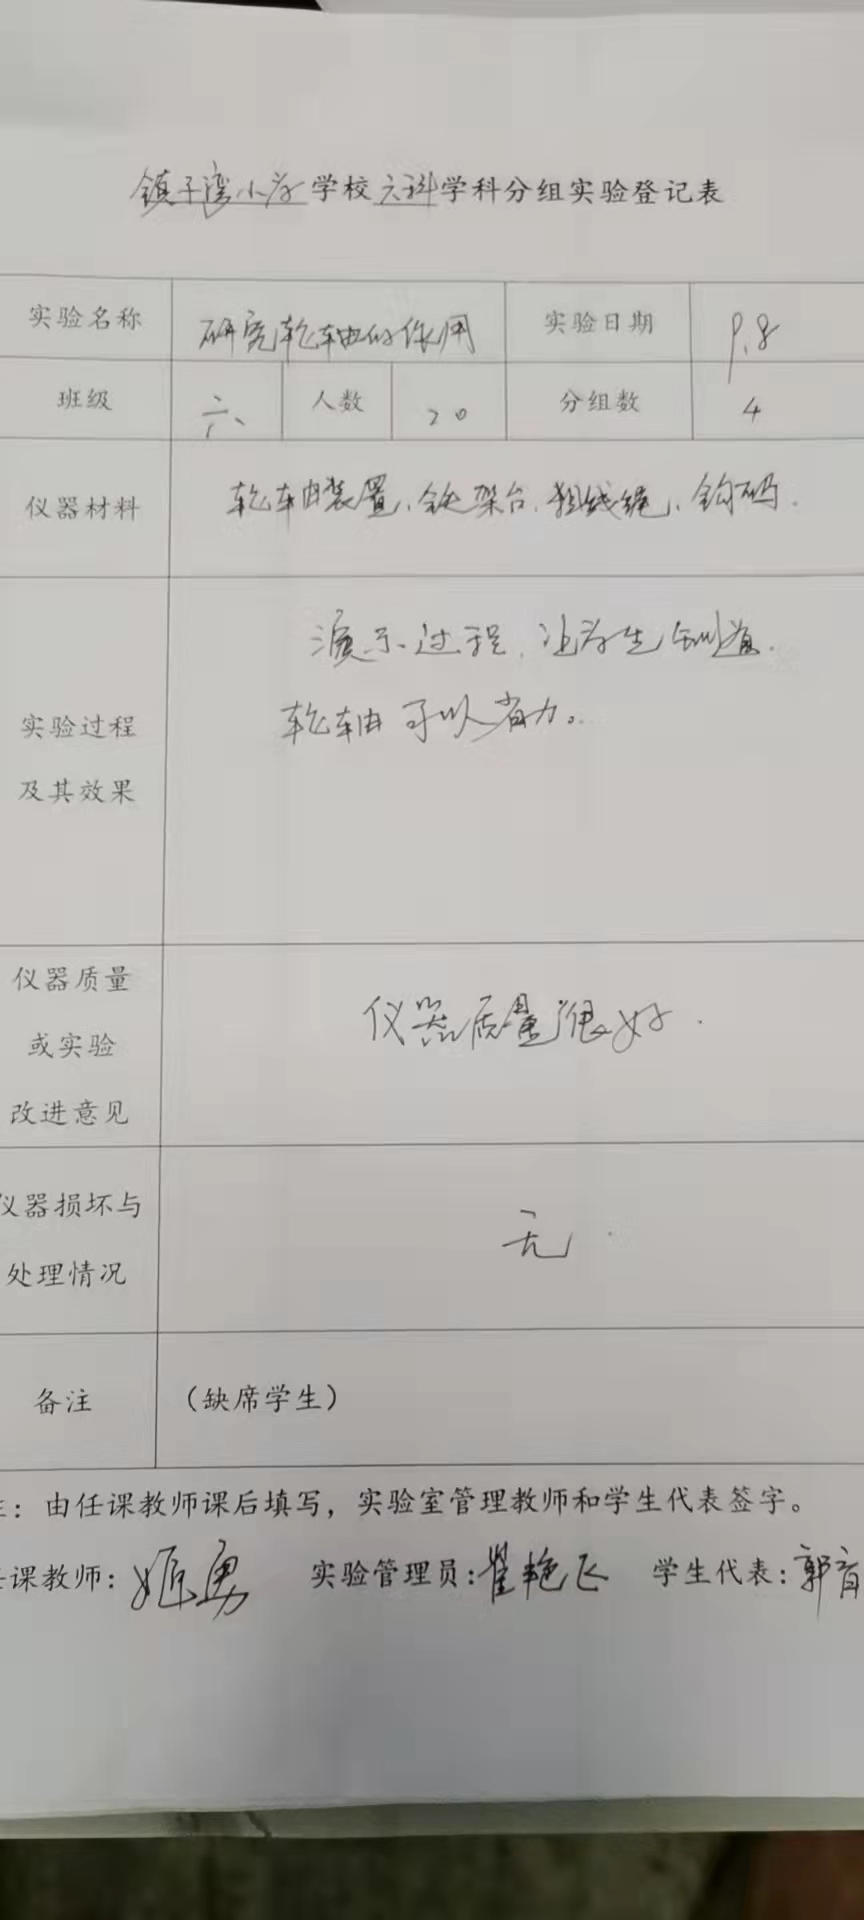 镇子湾小学学校六科学科分组实验登记表
实验名称 研究轮轴的作用 实验日期 9.8
班级 六、 人数 20 分组数 4
仪器材料 轮轴装置、铁架台、粗线绳、钩码.
实验过程
及其效果
演示过程,让学生知道.
轮轴可以省力。
仪器质量
或实验
改进意见
仪器质量很好.
仪器损坏与
处理情况
无.
备注 (缺席学生)
注:由任课教师课后填写,实验室管理教师和学生代表签字。
任课教师:姬勇 实验管理员:翟艳飞 学生代表:郭育